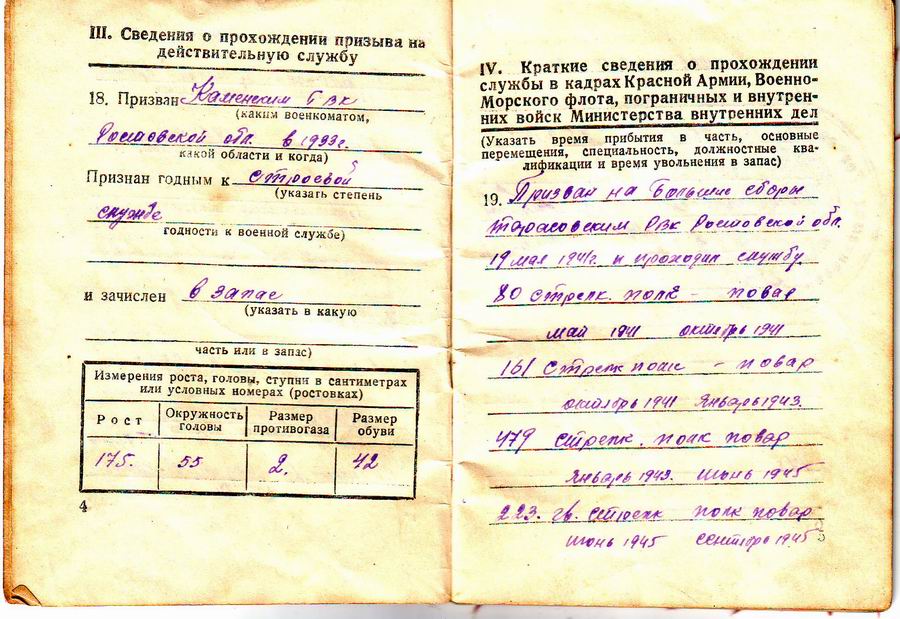 III. Сведения о прохождении призыва на
действительную службу
18. Призван Каменским Рвк
(каким военкоматом,
Ростовской обл. в 1933г.
какой области и когда)
Признан годным к строевой
(указать степень
службе
годности к военной службе)
и зачислен в запас
(указать в какую
часть или в запас)
Измерения роста, головы, ступни в сантиметрах
или условных номерах (ростовках)
Рост Окружность головы Размер противогаза Размер обуви
175. 55 2. 42
4
IV. Краткие сведения о прохождении
службы в кадрах Красной Армии, Военно-
Морского флота, пограничных и внутрен-
них войск Министерства внутренних дел
(Указать время прибытия в часть, основные
перемещения, специальность, должностные ква-
лификации и время увольнения в запас)
19. Призван на Большие сборы
Тарасовским Рвк Ростовской обл.
19 мая 1941г. и проходил службу
80 стрелк. полк – повар
май 1941 октябрь 1941
161 стрелк полк – повар
октябрь 1941 Январь 1943.
479 стрелк. полк повар
Январь 1943. Июнь 1945
223. гв. стрелк полк повар
Июнь 1945 сентябрь 1945
5